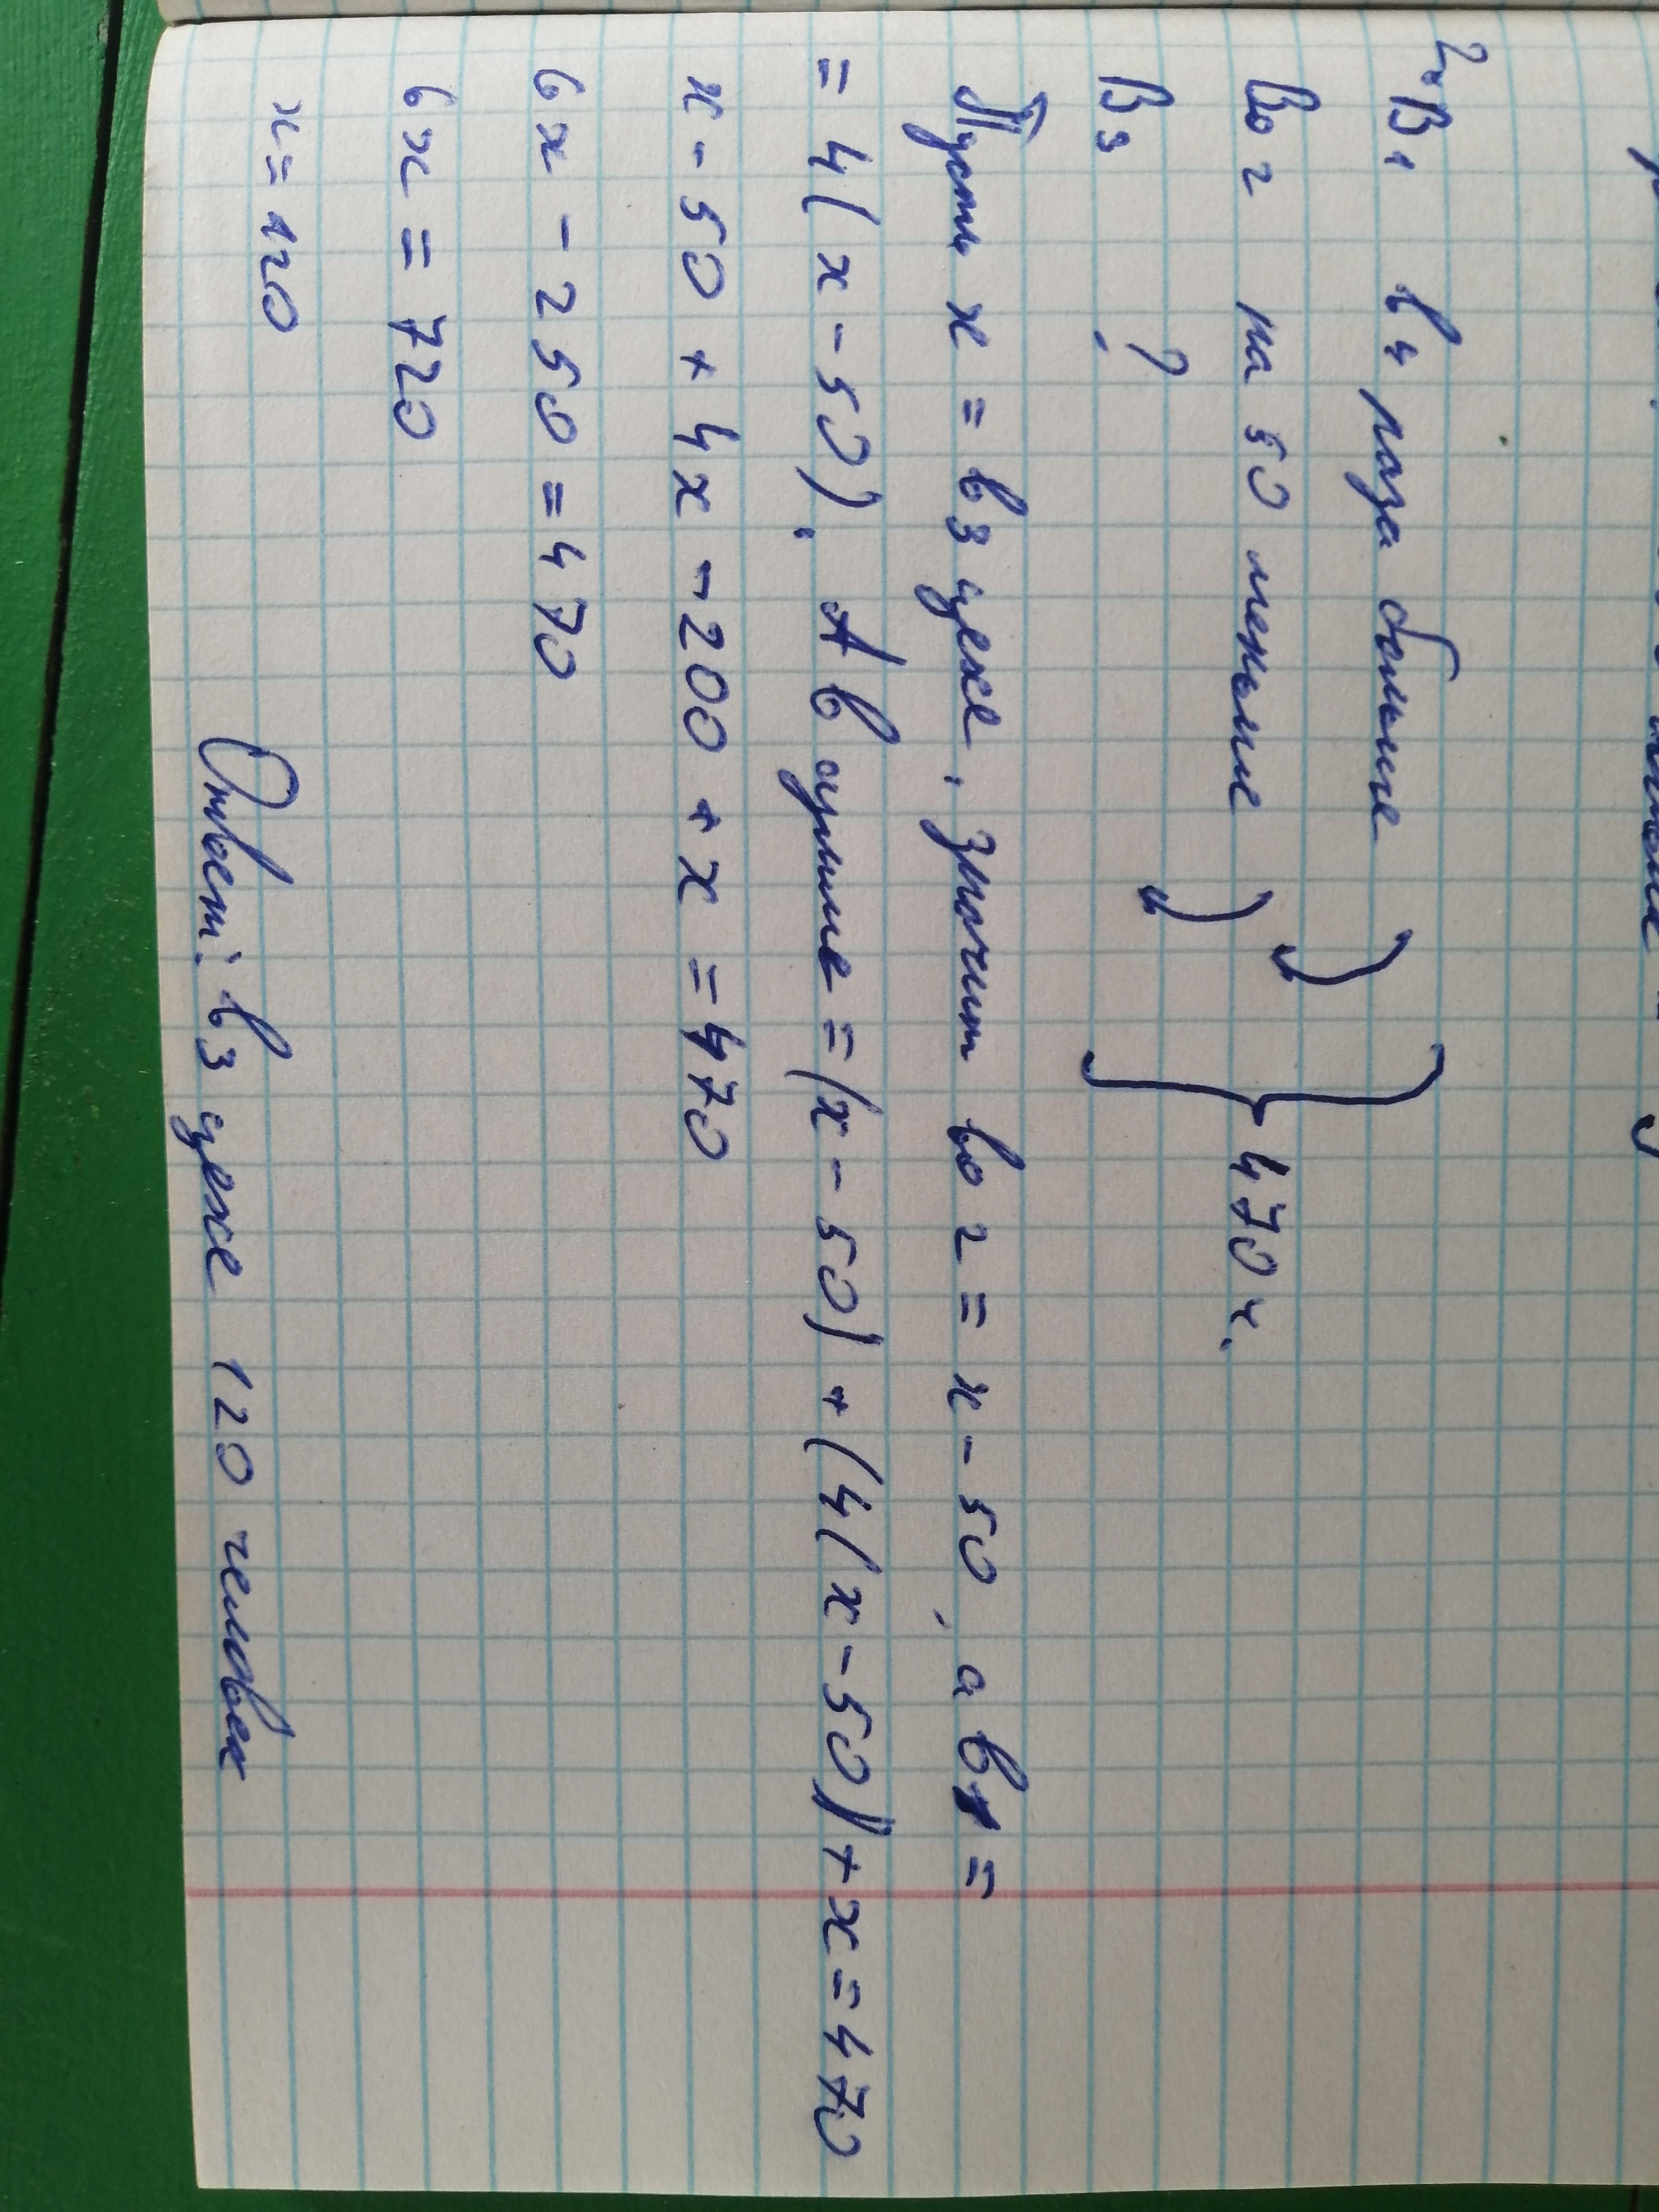 2. В 1 в 4 раза больше
Во 2 на 50 меньше } 470 ч.
В 3 ?
Пусть x = в 3 цехе, значит во 2 = x - 50, а в 1 =
= 4(x - 50). А в сумме = (x - 50) + (4(x - 50)) + x = 470
x - 50 + 4x - 200 + x = 470
6x - 250 = 470
6x = 720
x = 120
Ответ: в 3 цехе 120 человек